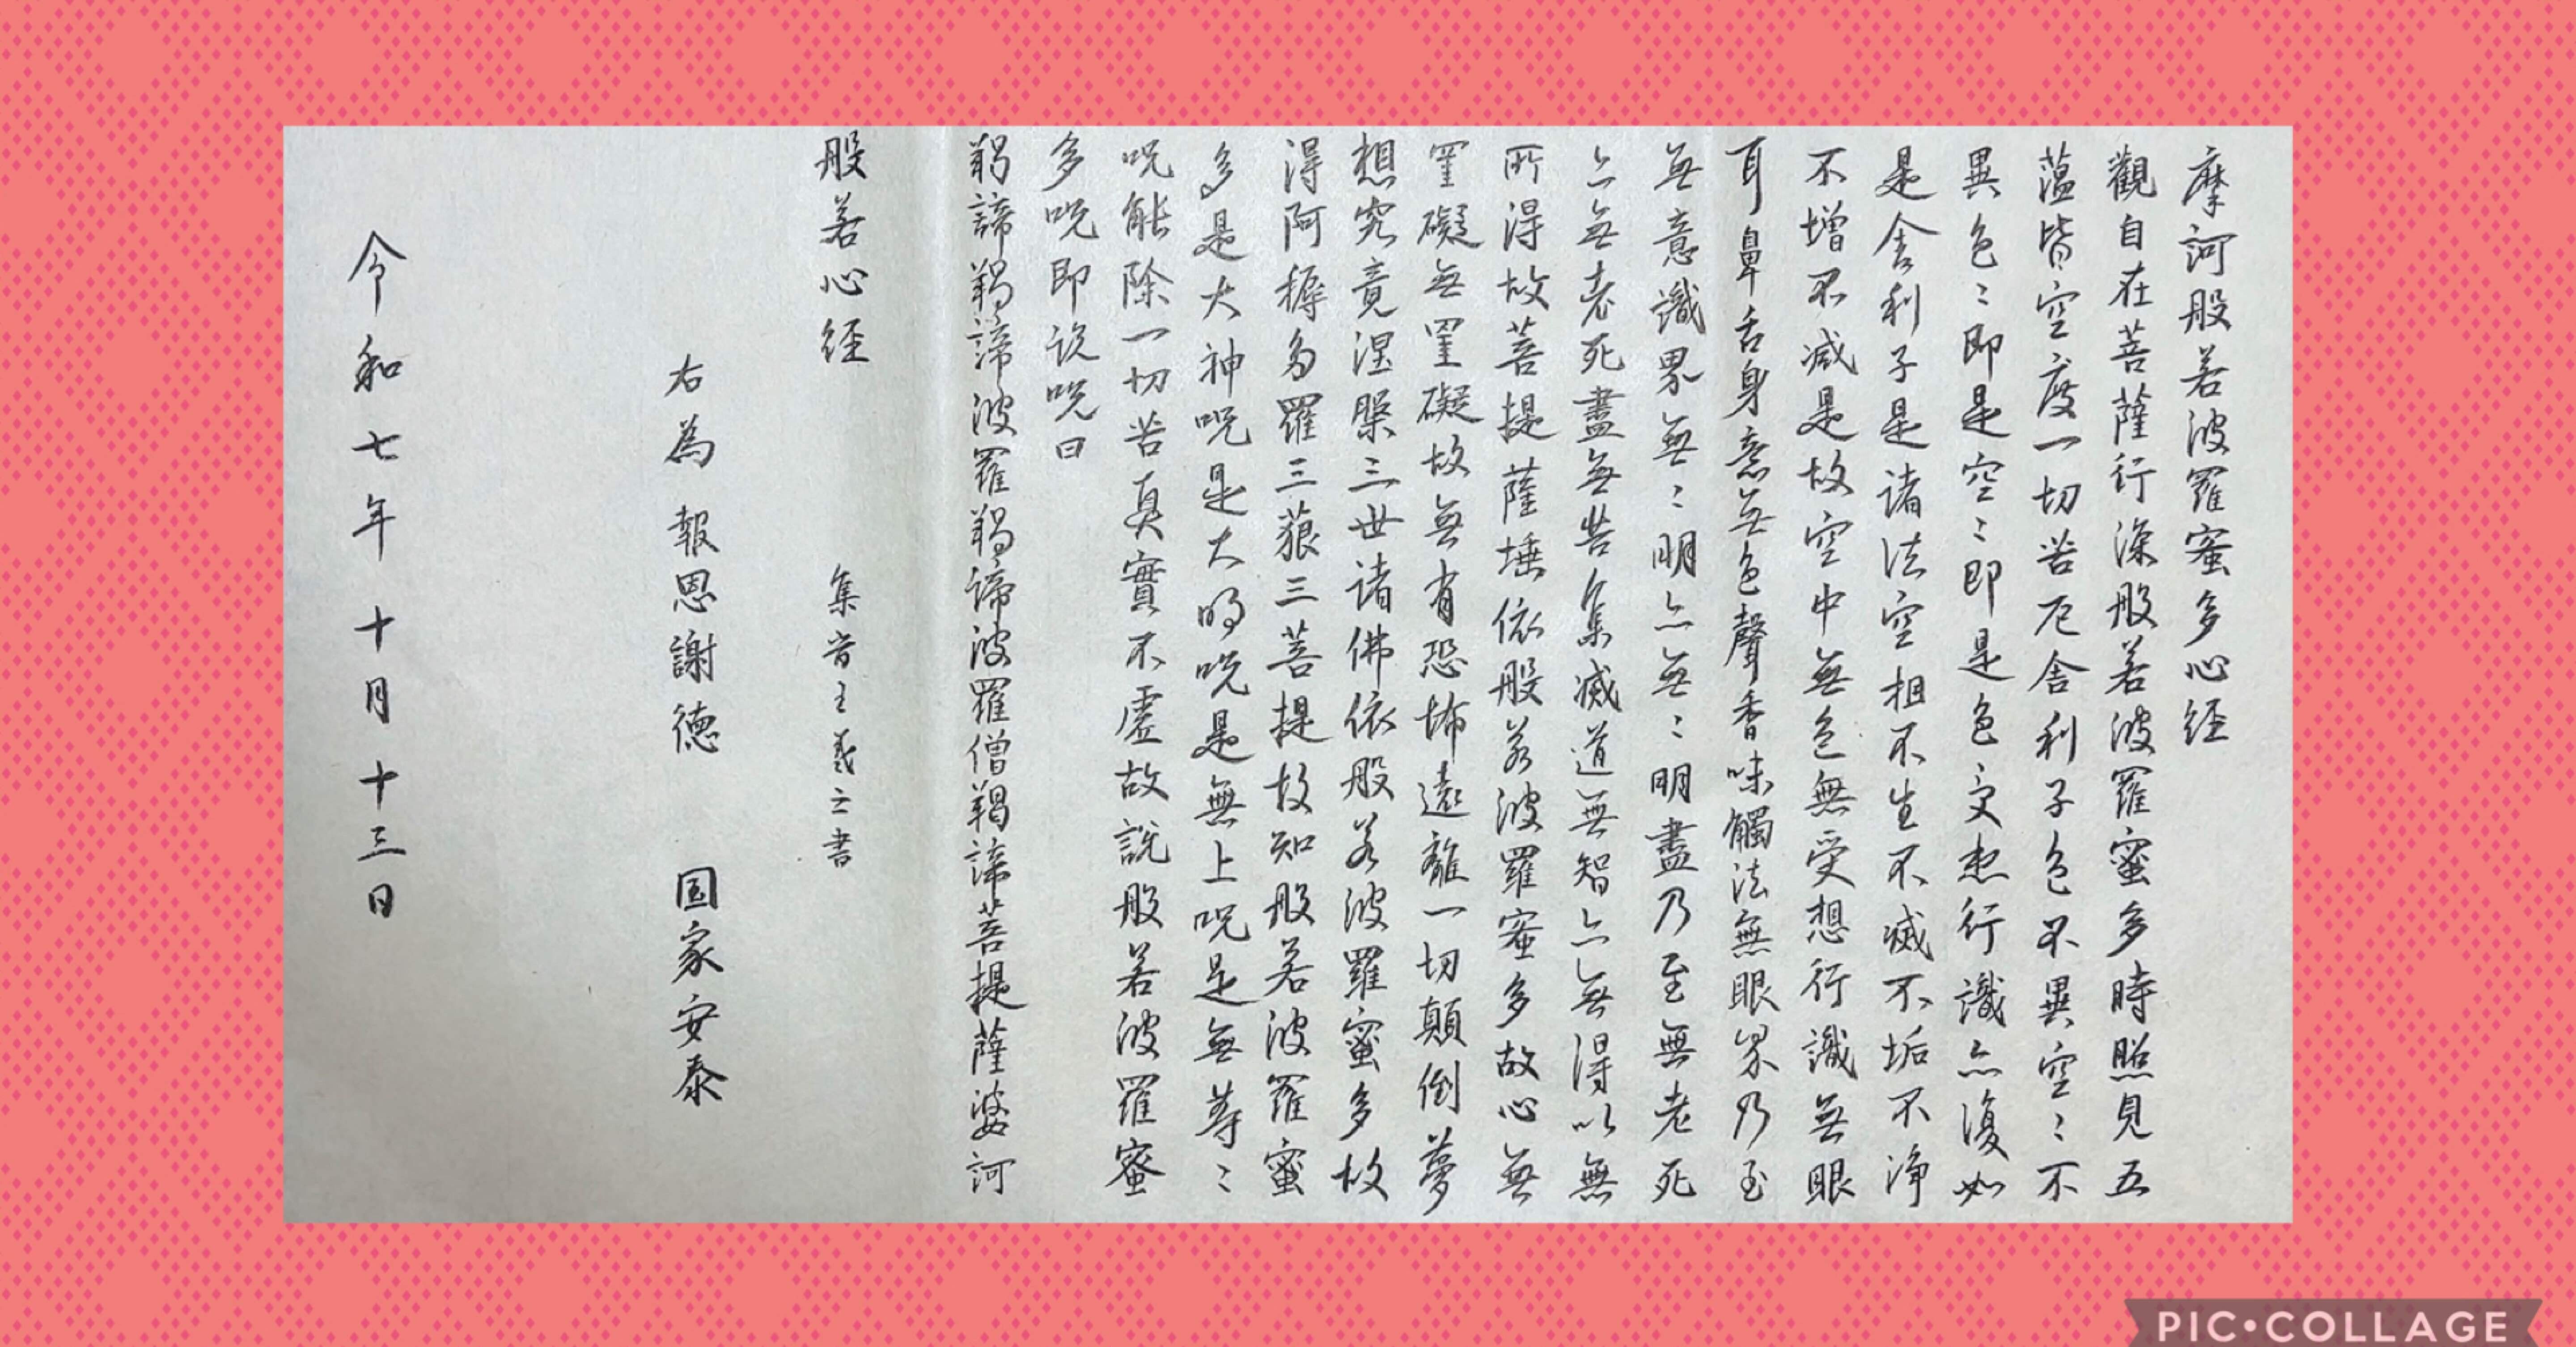 摩訶般若波羅蜜多心経
觀自在菩薩行深般若波羅蜜多時照見五
蕴皆空度一切苦厄舎利子色不異空〻不
異色〻即是空〻即是色受想行識亦復如
是舎利子是諸法空相不生不滅不垢不浄
不増不減是故空中無色無受想行識無眼
耳鼻舌身意無色聲香味觸法無眼界乃至
無意識界無〻明亦無〻明盡乃至無老死
亦無老死盡無苦集滅道無智亦無得以無
所得故菩提薩埵依般若波羅蜜多故心無
罣礙無罣礙故無有恐怖遠離一切顛倒夢
想究竟涅槃三世諸佛依般若波羅蜜多故
得阿耨多羅三藐三菩提故知般若波羅蜜
多是大神呪是大明呪是無上呪是無等〻
呪能除一切苦真實不虚故説般若波羅蜜
多呪即説呪曰
羯諦羯諦波羅羯諦波羅僧羯諦菩提薩婆訶
般若心経 集晉王羲之書
右為 報恩謝徳 国家安泰
令和七年十月十三日
PIC•COLLAGE